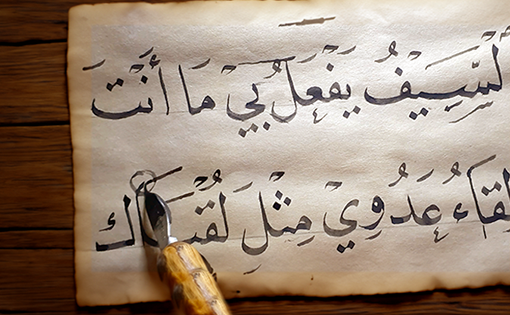 لسَّيْفُ يَفْعَلُ بِي مَا أَنْتَ
لقاءُ عَدُوِي مِثْلَ لُقْيَاك